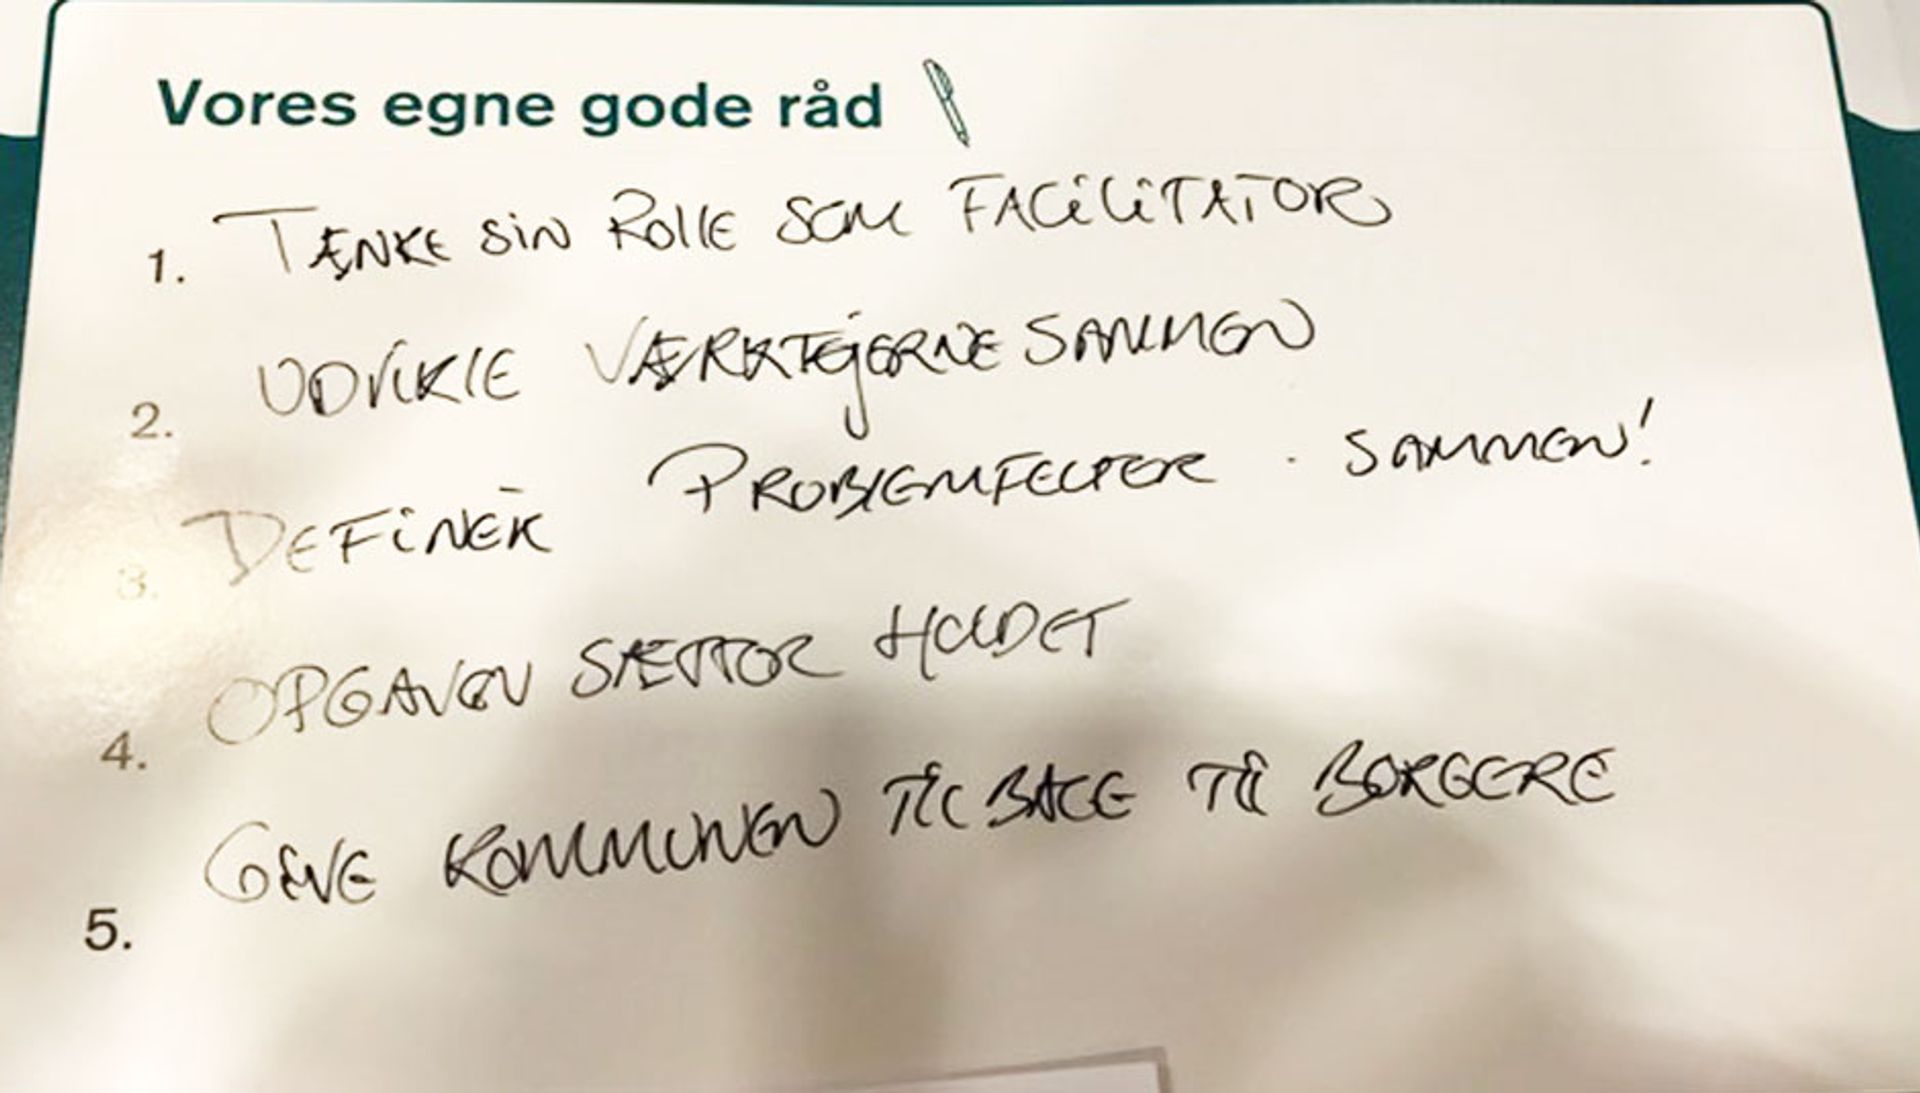 Vores egne gode råd
1. TÆNKE SIN ROLLE SOM FACILITATOR
2. UDVIKLE VÆRKTØJERNE SAMMEN
3. DEFINER PROBLEMFELTER - SAMMEN!
4. OPGAVEN SÆTTER HOLDET
5. GIVE KOMMUNEN TILBAGE TIL BORGERE